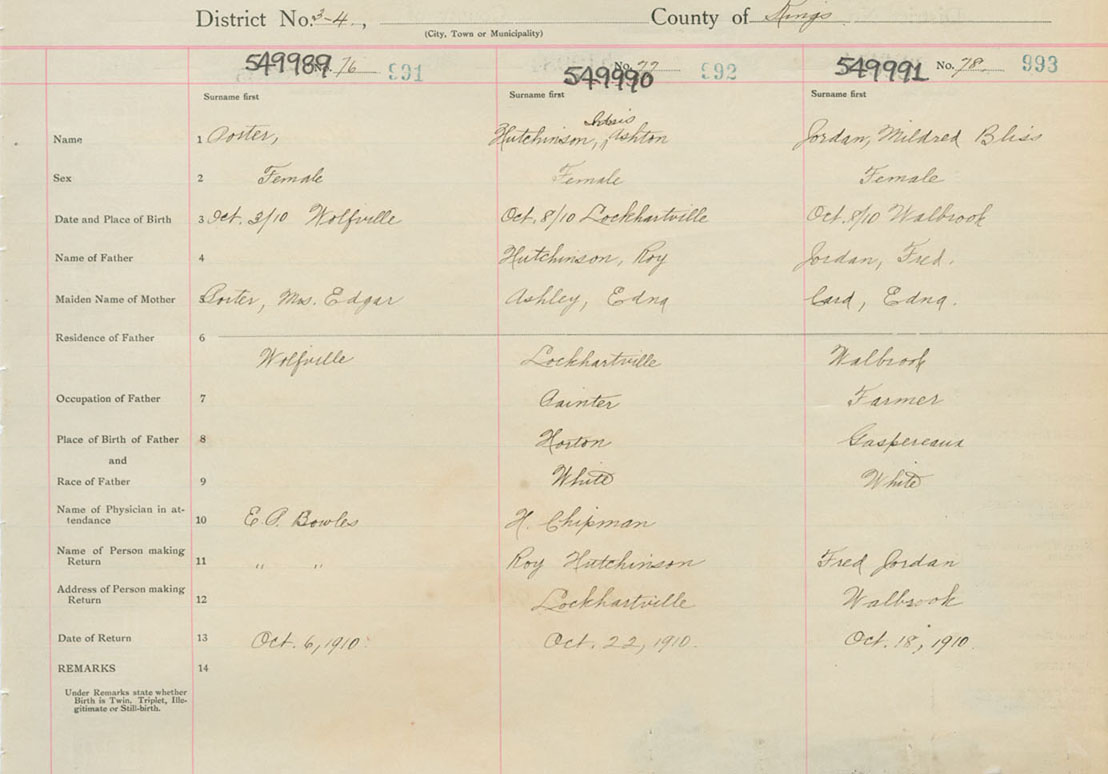 District No. 3-4, County of Kings
(City, Town or Municipality)
549989 No. 76 991 549990 No. 77 992 549991 No. 78 993
Surname first Surname first Surname first
Name 1 Porter, Hutchinson, Ashton Jordan, Mildred Bliss
Sex 2 Female Female Female
Date and Place of Birth 3 Oct. 3/10 Wolfville Oct. 8/10 Lockhartville Oct. 8/10 Walbrook
Name of Father 4 Hutchinson, Roy Jordan, Fred.
Maiden Name of Mother 5 Porter, Mrs. Edgar Ashley, Edna Card, Edna.
Residence of Father 6
Wolfville Lockhartville Walbrook
Occupation of Father 7 Painter Farmer
Place of Birth of Father 8 Horton Gaspereaux
and
Race of Father 9 White White
Name of Physician in at-
tendance 10 E. P. Bowles H. Chipman
Name of Person making
Return 11 " " Roy Hutchinson Fred Jordan
Address of Person making
Return 12 Lockhartville Walbrook
Date of Return 13 Oct. 6, 1910 Oct. 22, 1910. Oct. 18, 1910.
REMARKS 14
Under Remarks state whether
Birth is Twin, Triplet, Ille-
gitimate or Still-birth.